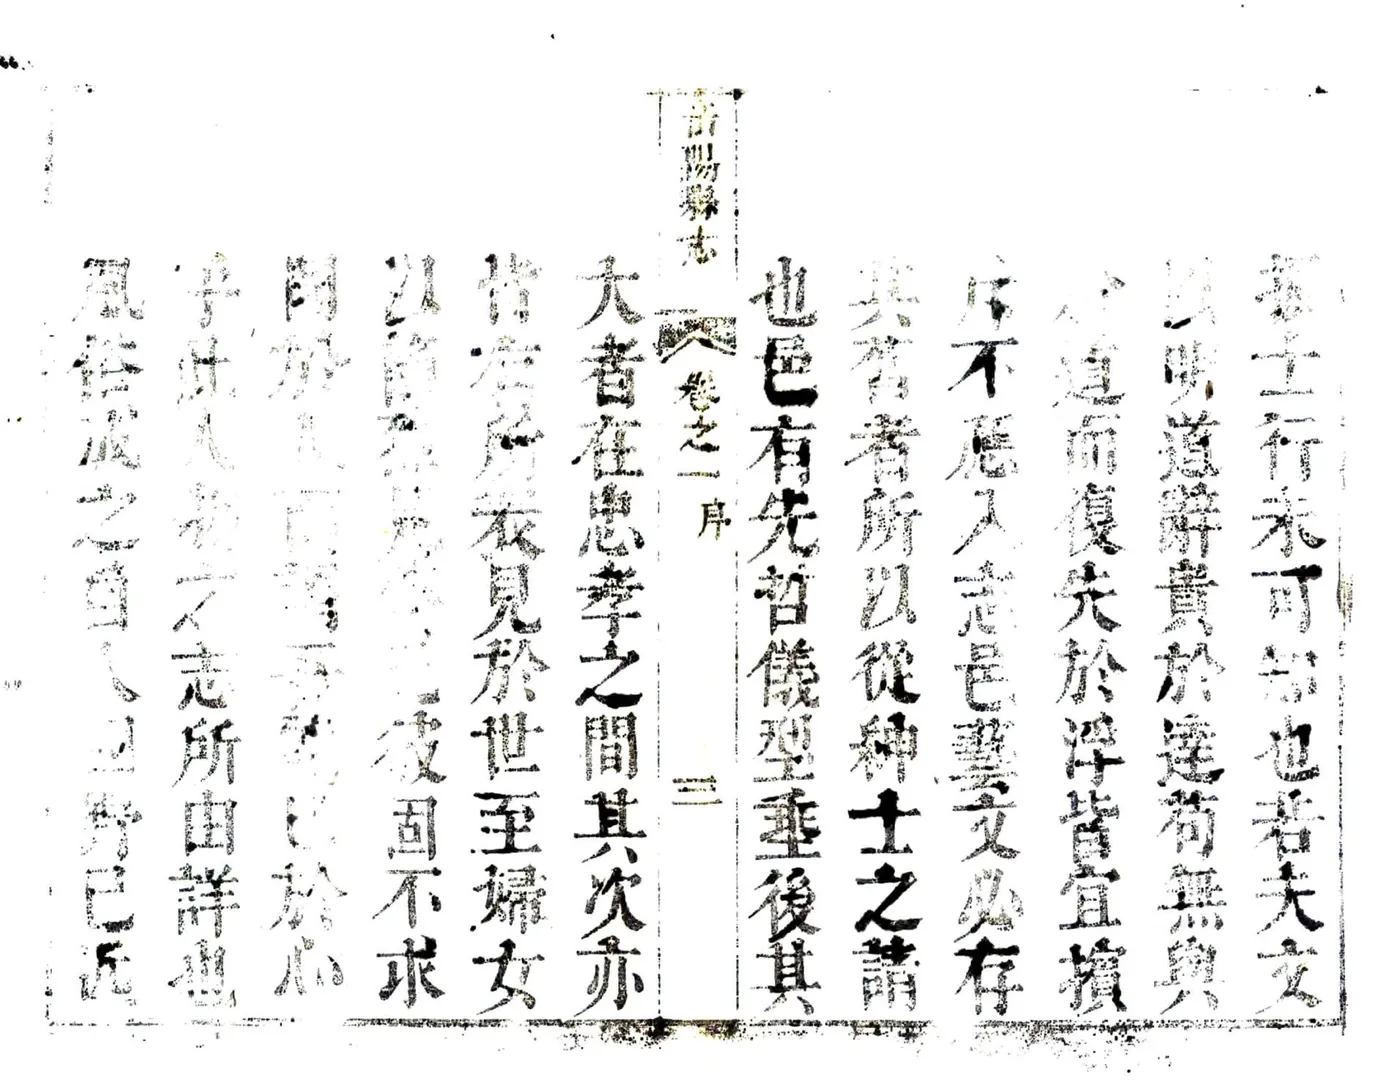 士行未可知也若夫文
以明道辭貴於達苟無與
道而復失於浮皆宜擯
序不應入志邑藝文必存
其舊者所以從紳士之請
也邑有先哲儀型垂後其
陽縣志
卷之一
序
三
大者在忠孝之間其次亦
皆有所表見於世至婦女
以節 彼固不求
聞於人 於心
乎此人物之志所由詳也
風俗成之自人 野已近